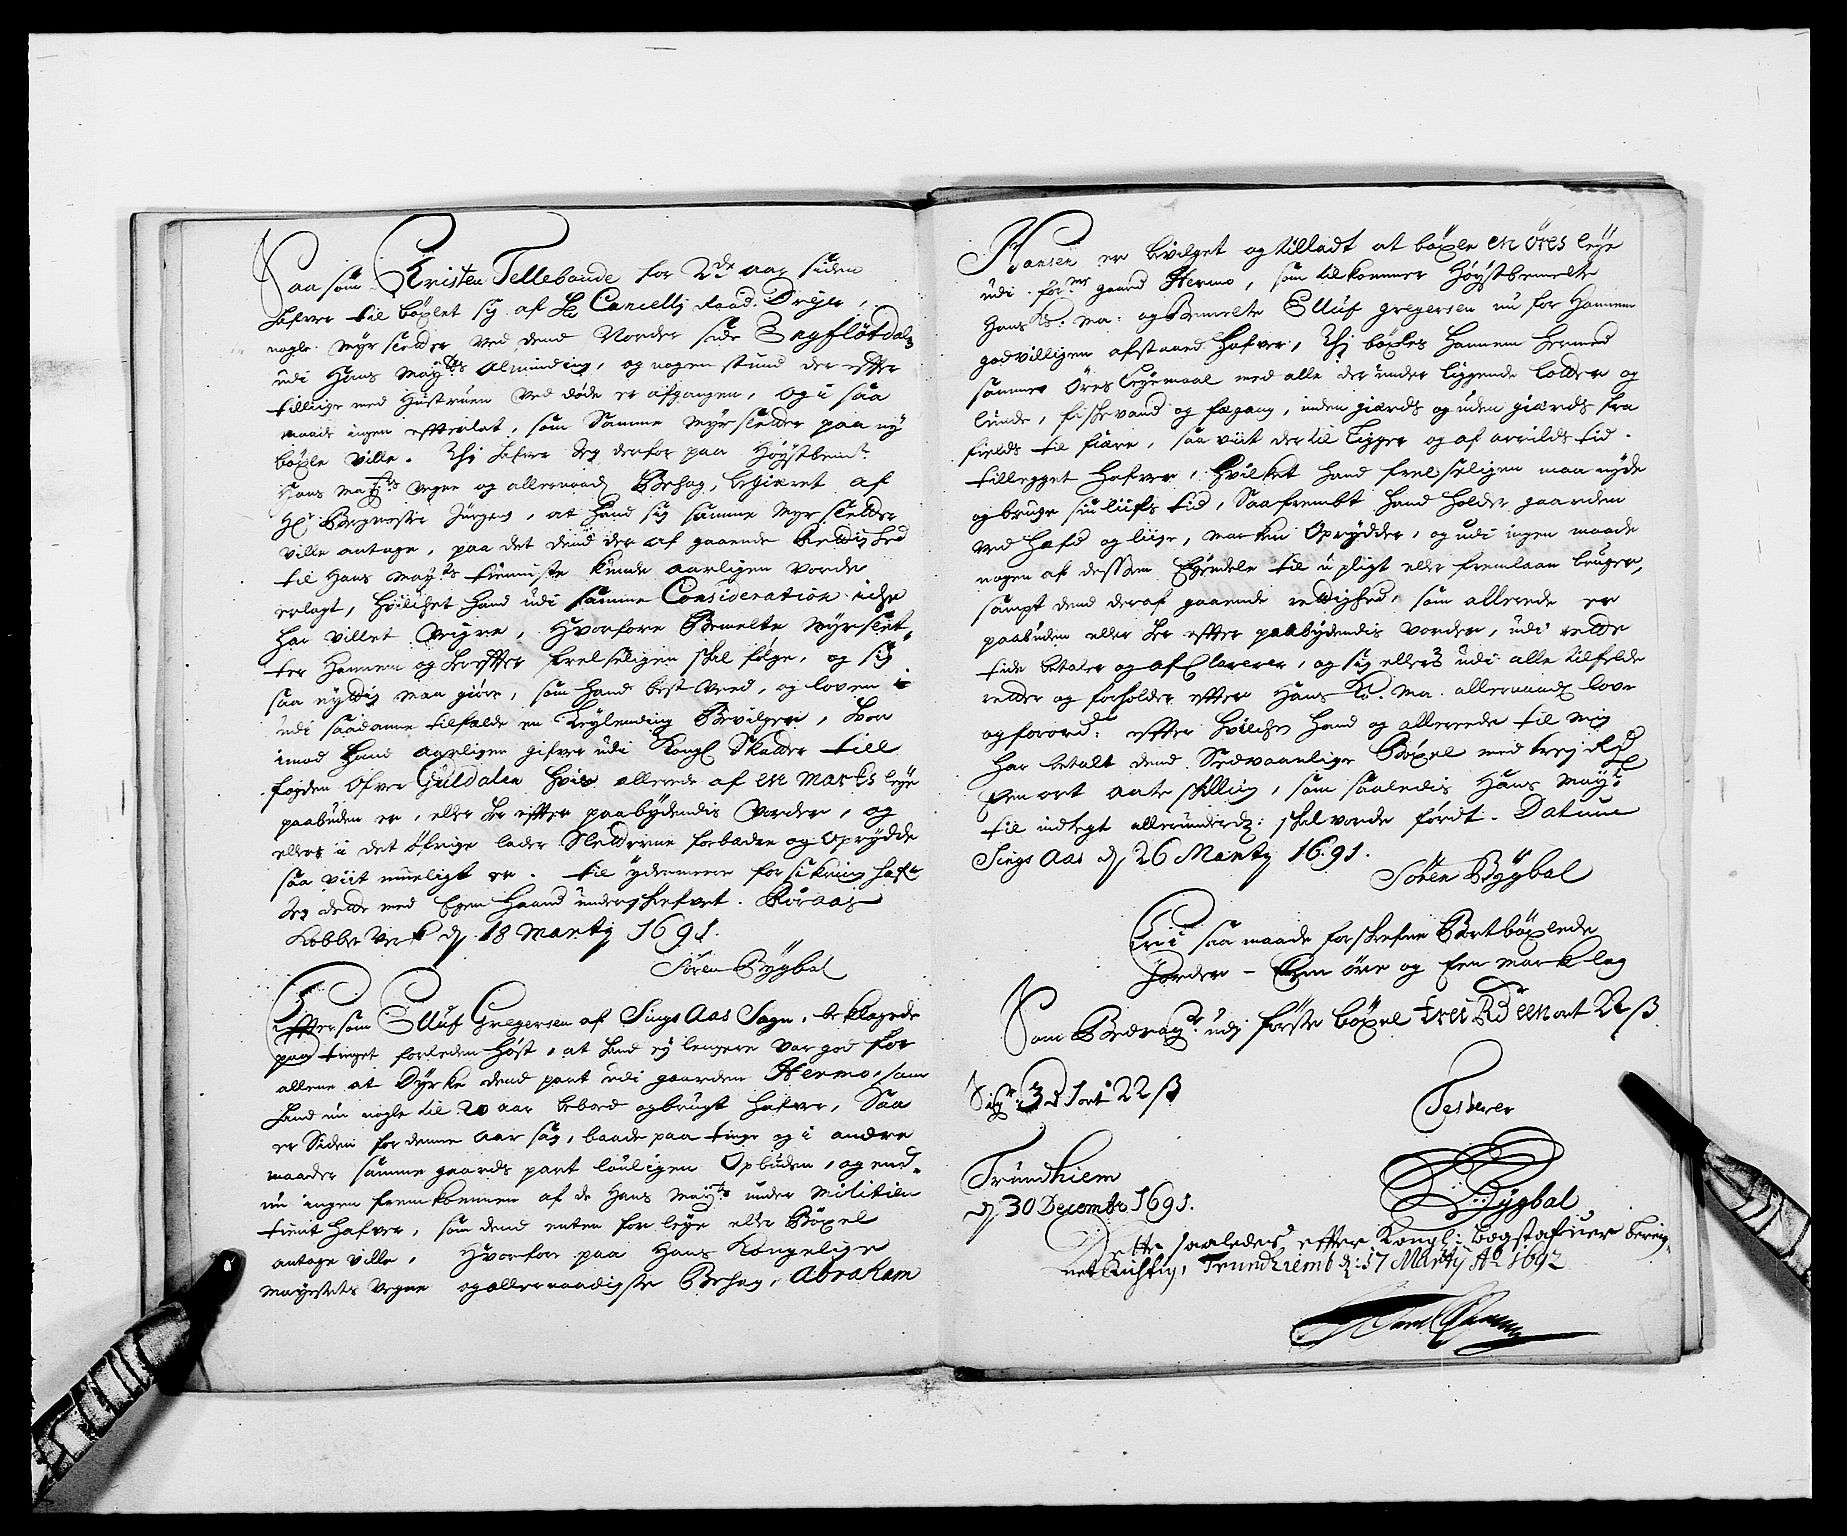 Saa som Kristen Tellebonde for 2de aar siden
hafver til böxlet sig af Hr Cancellj Raad Dreyer,
nogle Myr sletter ved dend Norder side Engflötdals
udi Hans Mayts Alminding, og nogen stund der efter
tilliige med Hustruen ved döde er afgangen, og i saa
maade ingen efterlat, som samme Myrsletter paa ny
böxle ville. Thj hafver Jeg derfor paa Höystbemte
Hans Mayts vegne og allernaad Behag, begiæret af
Hr Bergmester Jürgens, at hand sig samme Myr sletter
ville antage, paa det dend der af gaaende Rettighed
til Hans Mayts tienniste kunde aarligen vorde
erlagt, hvilchet hand udi samme Consideration iche
har villet veigre, Hvorfore Bemelte Myrslet-
ter Hannem og herefter frelseligen skal fölge, og sig
saa nyttig maa giöre, som hand best veed, og loven i
udi saadanne tilfælde en Leylending Bevilger, hvor
imod hand aarligen gifver udi Kongl Skatter till
fogden ofver Guldalen hvis allerede af en marks leye
paabuden er, eller her efter paabydendis vorder, og
ellers i det öfrige lader Sletterne forbedre og oprydde
saa viit mueligt er. til ydermeere forsikring hafr
Jeg dette med Egen Haand underskrefvet. Röraas
Kobber Verk dj 18 Martij 1691.
Sören Bygbal
Efftersom Elluf Gregersen af Sings Aas Sogn, beklagede
paa tinget forleden höst, at hand ej lengere var god for
allene at dyrke dend part udi gaarden Hermo, som
hand nu nogle til 20 aar beboed og brugt hafver, Saa
er siden for denne aar sag, baade paa tinge og i andre
maader samme gaards part louligen opbuden, og end-
nu ingen fremkommen af de Hans Mayts under Militien
tient hafver, som dend enten for leye eller Böxel
antage ville, Hvorfore paa Hans Kongelige
Mayestets vegne og allernaadigste Behag, Abraham
Hansen er bevilget og tilladt at böxle en öres leye
udi forne gaard Hermo, som tilkommer Höystbemelte
Hans K: Ma: og Bemelte Elluf gregersen nu for Hannem
godvilligen afstaaed hafver, Thj böxles Hannem hermed
samme öres Leyemaal med alle der under liggende lotter og
lunde, fischevand og fægang, inden giærds og uden giærds fra
fields til fiære, saa viit der til ligger og af arrilds tid
tilleyget hafver, Hvilket hand frelseligen maa nyde
og bruge sin liifs tid, Saafrembt hand holder gaarden
ved hæfd og liige, marken oprydder, og udi ingen maade
nogen af dessen Eyendele til u pligt eller fremlaan bruger,
sampt dend deraf gaaende rettighed, som allerede er
paabuden eller her efter paabydendis vorder, udi rette
tide betaler og afClarerer, og sig ellers udi alle tilfelde
retter og forholder efter Hans K. Ma. allernaadt love
og forord: efter hvilchet hand og allerede til mig
har betalt dend Sedvaanlige Böxel med trej Rdr
Een ort aate skilling, som saaledis Hans Mayt
til indtegt allerunderd: skal vorde fördt. Datum
Sings Aas dj 26 Martij 1691.
Sören Bygbal
Er i saa maade forskrefne Bortböxlede
Jorder - Een öre og Een mark lag
Som Bedrager udj förste böxel trei Rdr een ort 22 ß
Siger 3 d 1 ort 22 ß
Testerer
Trundhiem
dj 30 Decembr 1691.
SBygbal
Dette saaledes effter Kongl: bogstafuer bereig-
net Richtig, Trundhiemb d: 17 Martij Ao 1692